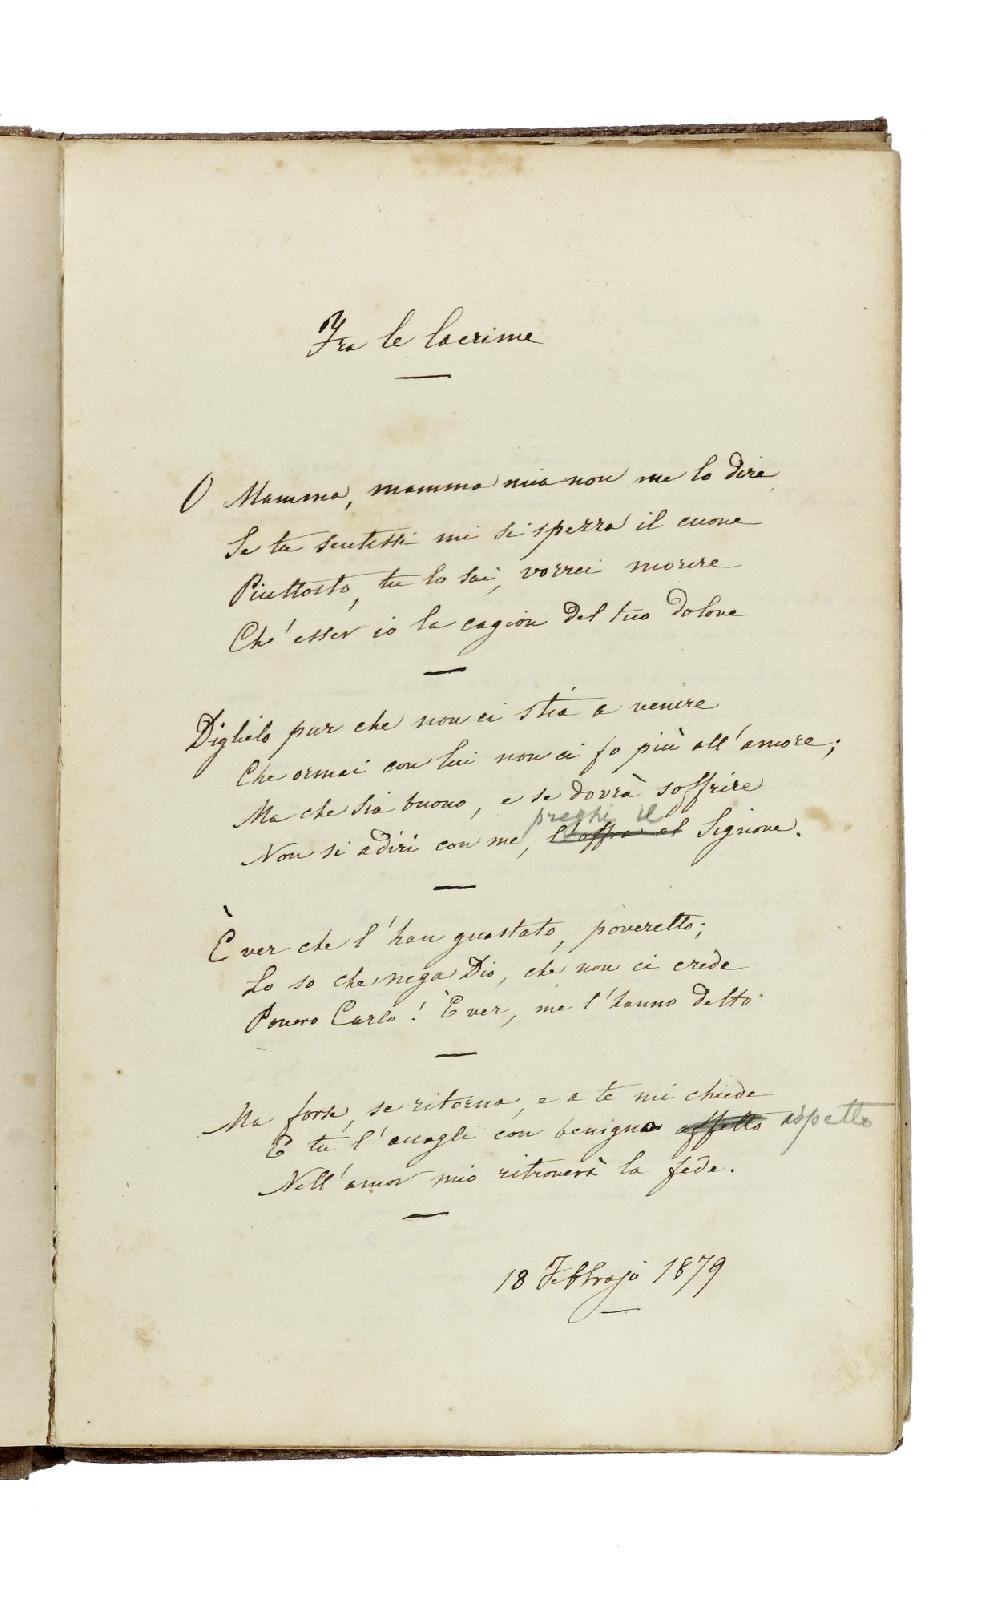 Fra le lacrime
O Mamma, mamma mia non me lo dire
Se tu sentissi mi si spezza il cuore
Piuttosto, tu lo sai, vorrei morire
Ch' esser io la cagion del tuo dolore
Diglielo pur che non ci stia a venire
Che ormai con lui non ci fo più all'amore;
Ma che sia buono, e se dovrà soffrire
preghi il
Non si adiri con me, l'offra al Signore.
È ver che l'han guastato, poveretto;
Lo so che nega Dio, che non ci crede
Povero Carlo! È ver, me l'hanno detto.
Ma forse, se ritorna, e a te mi chiede
E tu l'accogli con benigno affetto aspetto
Nell'amor mio ritroverà la fede.
18 Febbrajo 1879